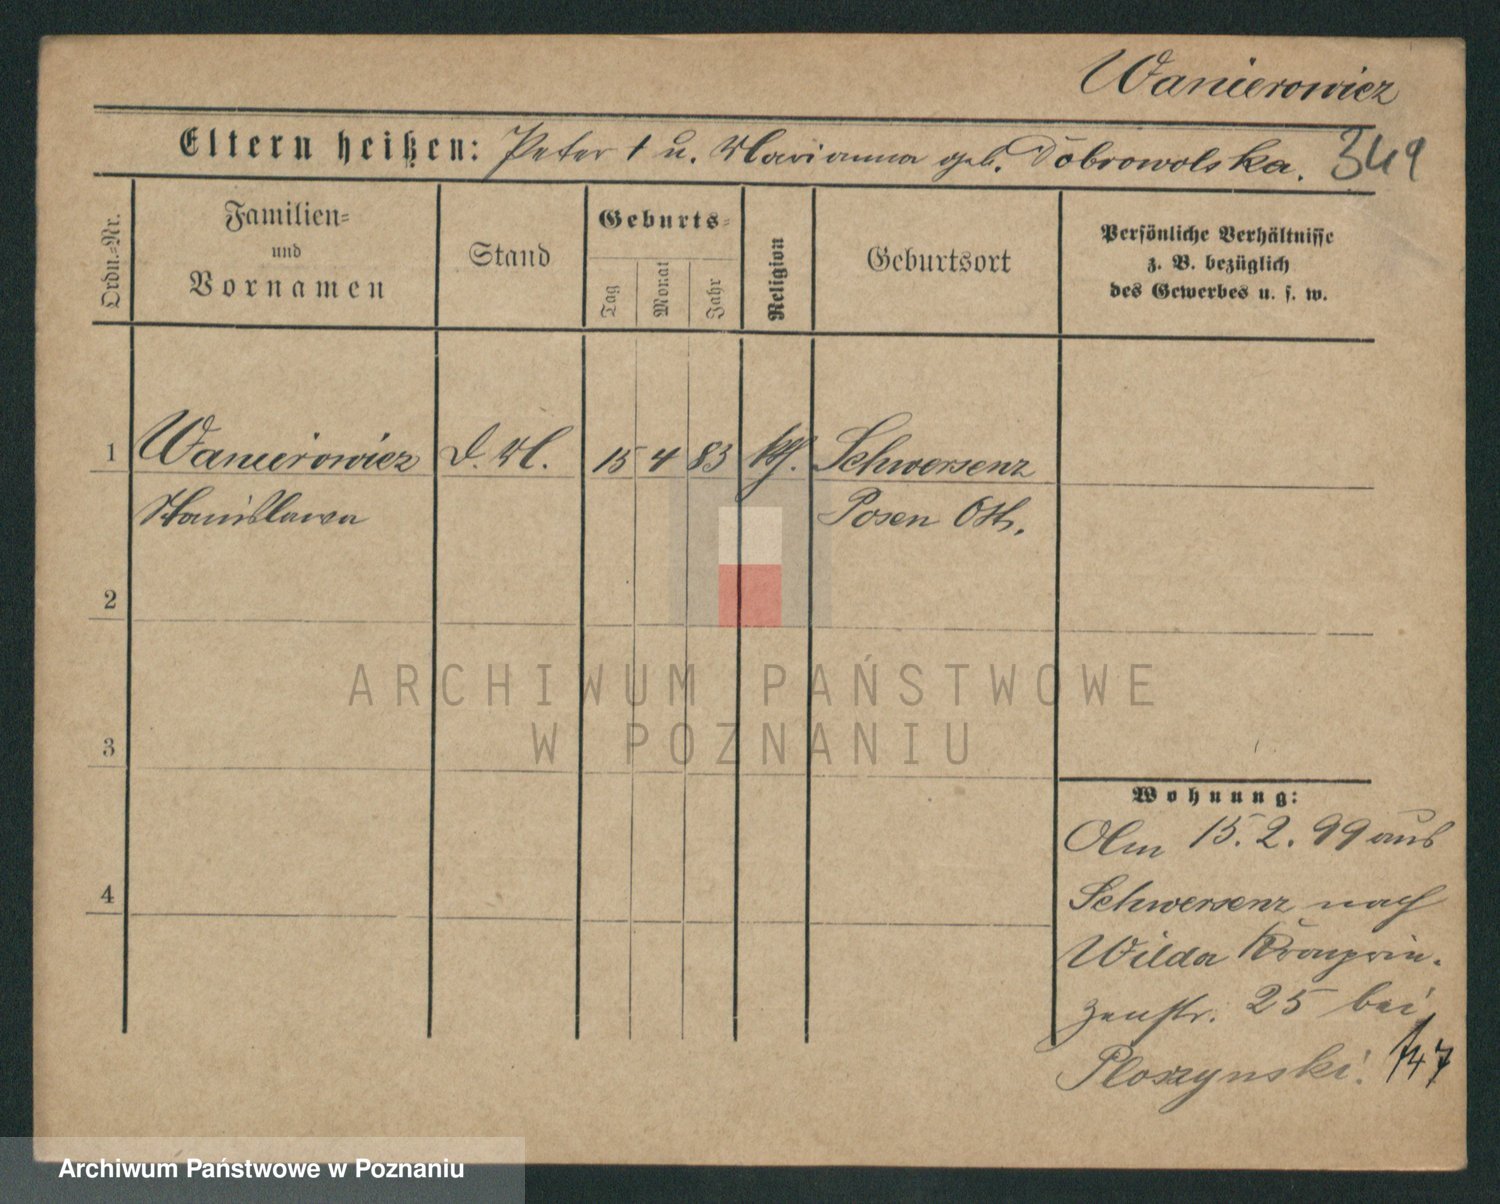 Wanierowicz
Eltern heißen: Peter † u. Marianna geb. Dobrowolska. 349
Ordn.-Nr.
Familien-
und
Vornamen
Stand
Geburts-
Tag
Monat
Jahr
Religion
Geburtsort
Persönliche Verhältnisse
z. B. bezüglich
des Gewerbes u. s. w.
1 Wanierowicz D. M. 15 4 83 kth. Schwersenz
Stanislawa Posen Ost.
2
3
4
ARCHIWUM PAŃSTWOWE
W POZNANIU
Wohnung:
Am 15.2.99 aus
Schwersenz nach
Wilda Kronprin-
zenstr. 25 bei
Ploszynski. 747
Archiwum Państwowe w Poznaniu